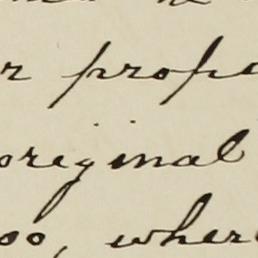 r propo
original
oo, where